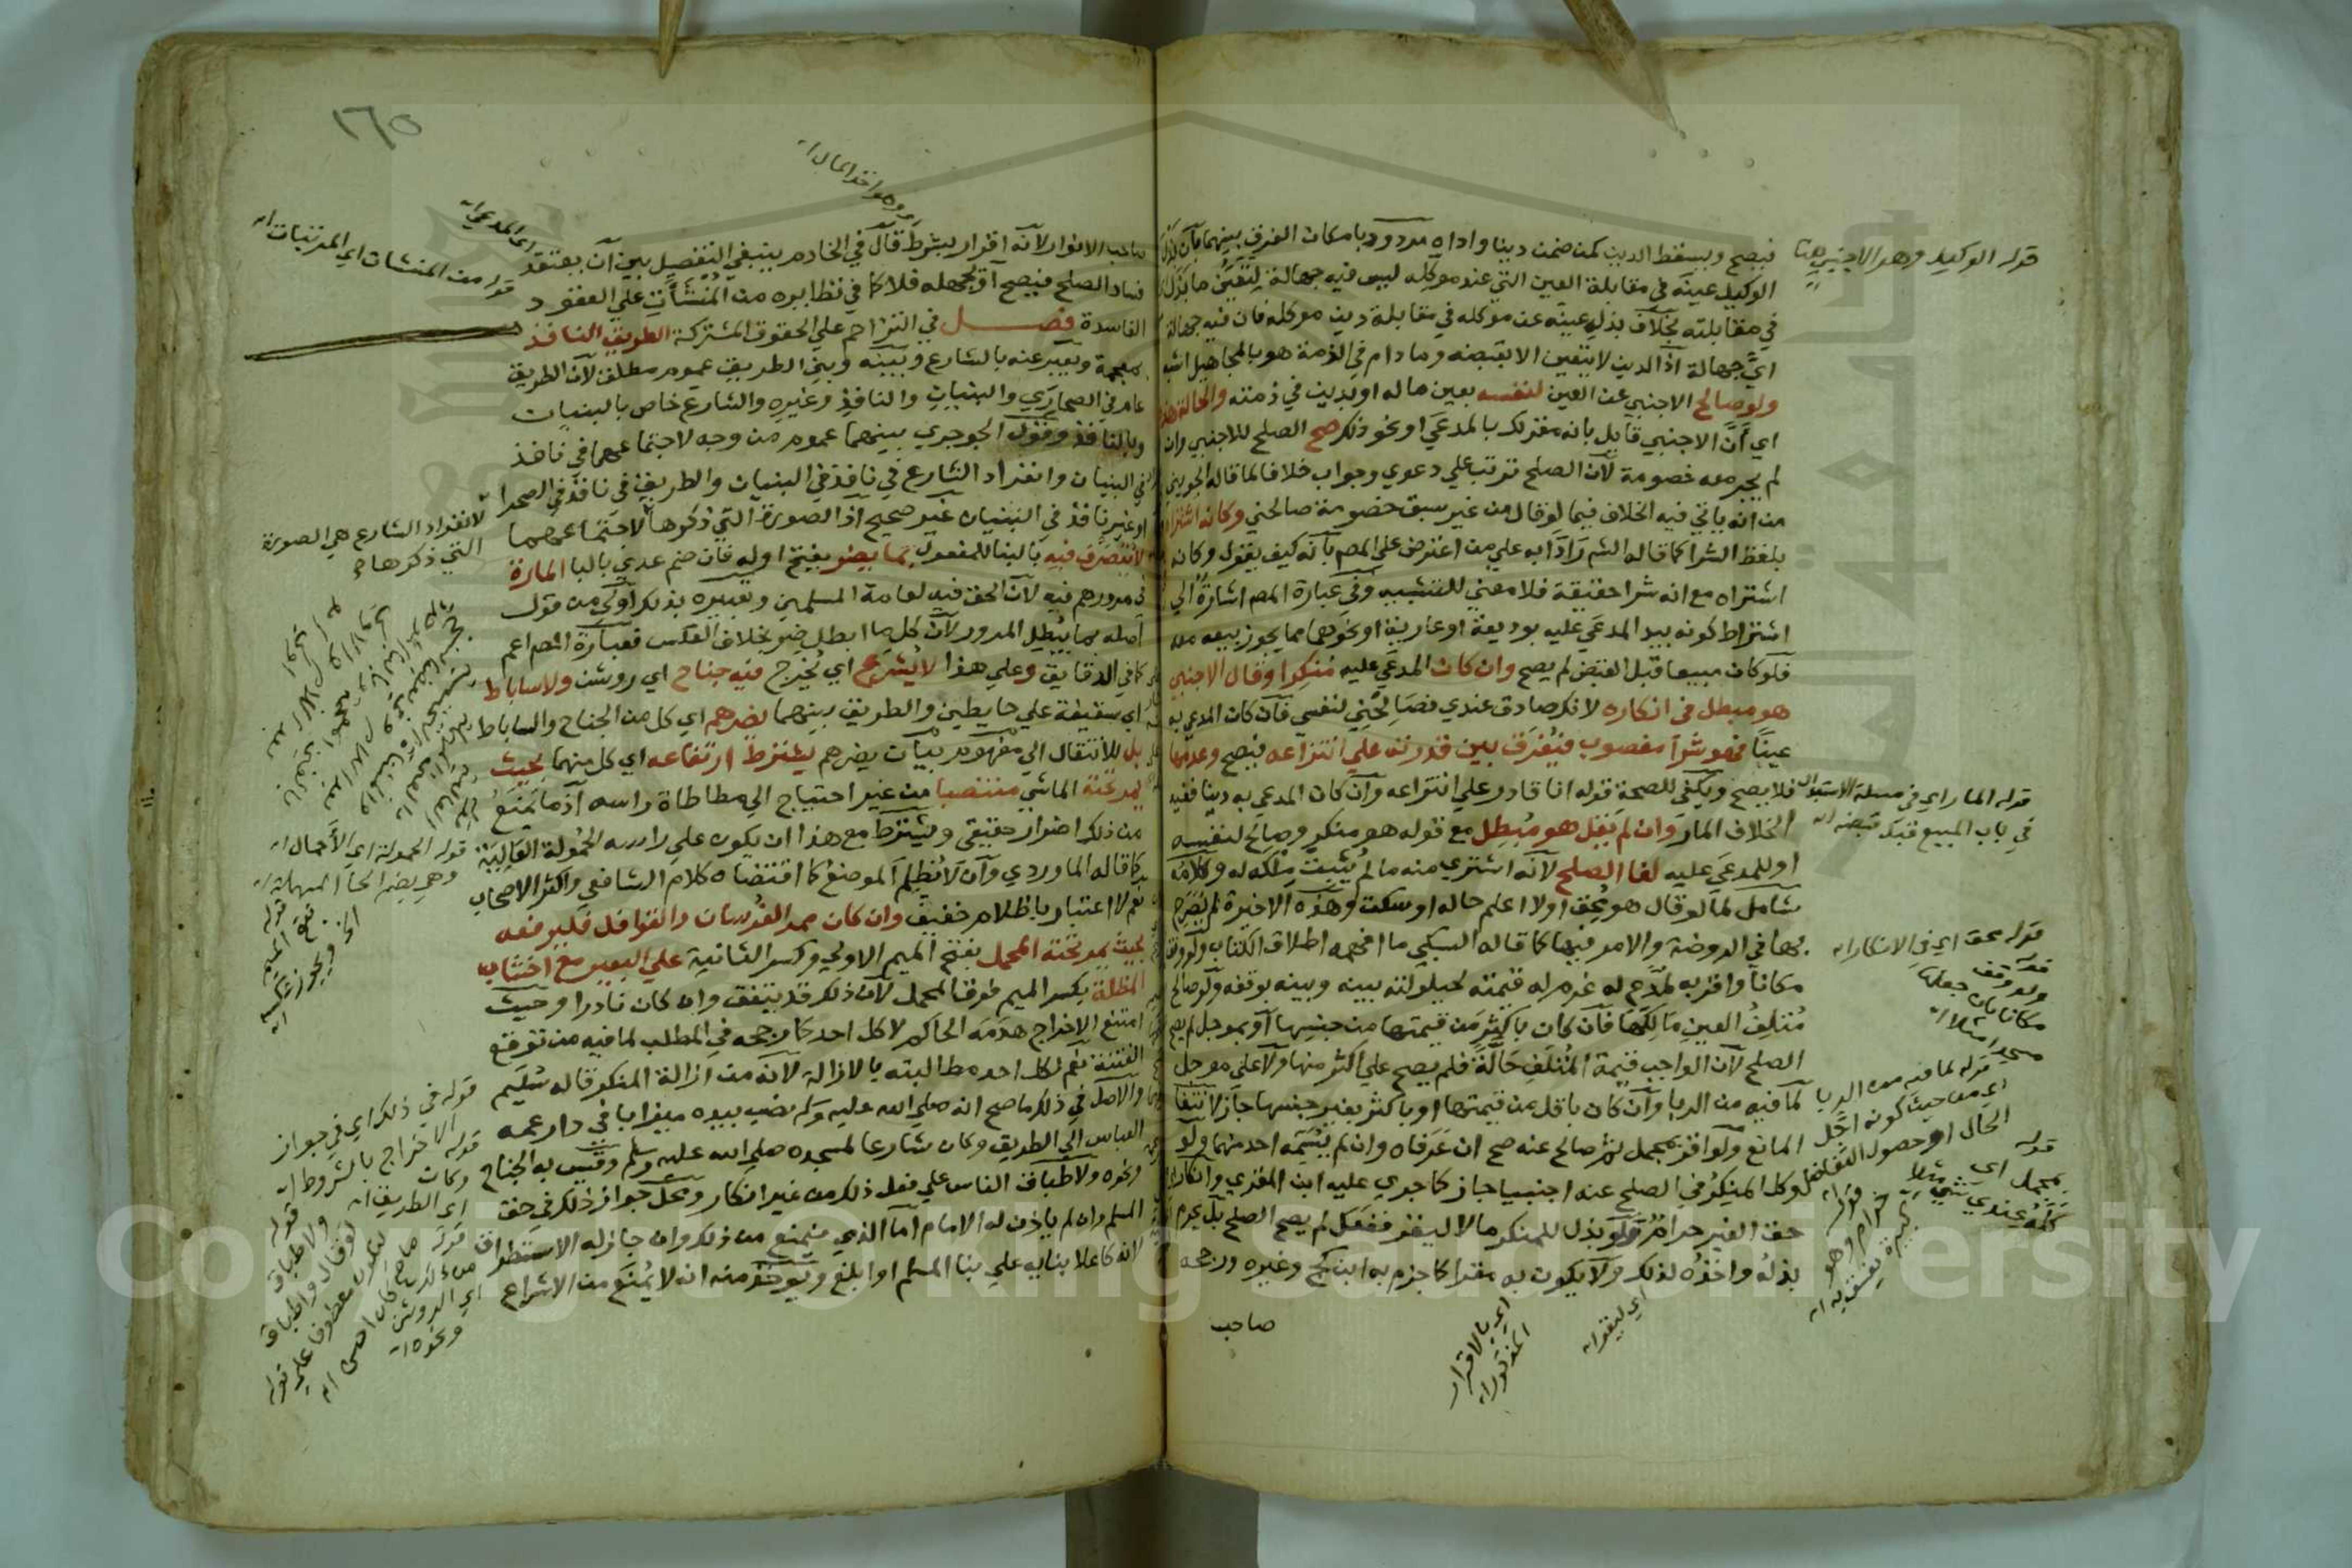 فيصح ويسقط الدين كمن ضمن دينا واداه مردود بامكان الفرق بينهما بان بذل
الوكيل عينه في مقابلة العين التي عند موكله ليس فيه جهالة لتعين ما بذل
في مقابلته بخلاف بذل عينه عن موكله في مقابلة دين موكله فان فيه جهالة
اي جهالة اذ الدين لا يتعين الا بقبضه وما دام في الذمة هو بالمجاهيل اشبه
ولو صالح الاجنبي عن العين لنفسه بعين ماله او بدين في ذمته والحالة هذه
اي ان الاجنبي قايل بانه مقر لك بالمدعي او نحو ذلك صح الصلح للاجنبي وان
لم يجر معه خصومة لان الصلح ترتب علي دعوي وجواب خلافا لما قاله الجويني
من انه ياتي فيه الخلاف فيما لو قال من غير سبق خصومة صالحني وكانه اشتراه
بلفظ الشرا كما قاله الشم رادا به علي من اعترض علي المصم بانه كيف يقول وكانه
اشتراه مع انه شرا حقيقة فلا معني للتشبيه وفي عبارة المصم اشارة الي
اشتراط كونه بيد المدعي عليه بوديعة او عارية او نحوهما مما يجوز بيعه معه
فلو كان مبيعا قبل القبض لم يصح وان كان المدعي عليه منكرا وقال الاجنبي
هو مبطل في انكاره لانك صادق عندي فصالحني لنفسي فان كان المدعي به
عينا فهو شرا مغصوب فيفرق بين قدرته علي انتزاعه فيصح وعدمها
فلا يصح ويكفي للصحة قوله انا قادر علي انتزاعه وان كان المدعي به دينا ففيه
الخلاف المار وان لم يقل هو مبطل مع قوله هو منكر وصالح لنفسه
او للمدعي عليه لغا الصلح لانه اشتري منه ما لم يثبت ملكه له وكلامه
شامل لما لو قال هو محق اولا اعلم حاله او سكت وهذه الاخيرة لم يصرح
بها في الروضة والامر فيها كما قاله السبكي ما افهمه اطلاق الكتاب ولو وقف
مكانا واقر به لمدع له غرم له قيمته لحيلولته بينه وبينه بوقفه ولو صالح
متلف العين مالكها فان كان باكثر من قيمتها من جنسها او بموجل لم يصح
الصلح لان الواجب قيمة المتلف حالة فلم يصح علي اكثر منها ولا علي موجل
لما فيه من الربا وان كان باقل من قيمتها او باكثر بغير جنسها جاز لانتفا
المانع ولو اقر بمجمل ثم صالح عنه صح ان عرفاه وان لم يسمه احد منهما ولو
وكل المنكر في الصلح عنه اجنبيا جاز كما جري عليه ابن المقري وانكار
حق الغير حرام ولو بذل للمنكر مالا ليقر ففعل لم يصح الصلح بل يحرم
بذله واخذه لذلك ولا يكون به مقرا كما جزم به ابن كج وغيره ورجحه
صاحب
قوله الوكيل وهو الاجنبي هنا
قوله المار اي في مسئلة الاستبدال
في باب المبيع قبل قبضه اه
قوله محق اي في الانكار اه
قوله
ولو وقف
مكانا بان جعله
مسجدا مثلا اه
قوله لما فيه من الربا
اي من حيث كونه اجل
الحال او حصول التفاضل
قوله
بمجمل اي
كله عندي شي مثلا
قوله
حرام وهو
كبيرة يفسق به اه
اي ليقر اه
اي بالاقرار
المذكور اه
١٦٥
صاحب الانوار لانه اقرار بشرط قال في الخادم ينبغي التفصيل بين ان يعتقد
فساد الصلح فيصح او يجهله فلا كما في نظايره من المنشات علي العقود
الفاسدة فصل في التزاحم علي الحقوق المشتركة الطريق النافذ
بمعجمة ويعبر عنه بالشارع وبينه وبين الطريق عموم مطلق لان الطريق
عام في الصحاري والبنيان والنافذ وغيره والشارع خاص بالبنيان
وبالنافذ وقول الجوجري بينهما عموم من وجه لاجتماعهما في نافذ
في البنيان وانفراد الشارع في نافذ في البنيان والطريق في نافذ في الصحرا
او غير نافذ في البنيان غير صحيح اذ الصورة التي ذكرها لاجتماعهما
لا يتصرف فيه بالبنا للمفعول بما يضر بفتح اوله فان ضم عدي بالبا المارة
في مرورهم فيه لان الحق فيه لعامة المسلمين وتعبيره بذلك اولي من قول
اصله بما يبطل المرور لان كل ما ابطل ضر بخلاف العكس فعبارة المصم اعم
كما في الدقايق وعلي هذا لا يشرع اي يخرج فيه جناح اي روشن ولا ساباط
اي سقيفة علي حايطين والطريق بينهما يضرهم اي كل من الجناح والساباط
بل للانتقال الي مفهوم بيان يضرهم يشترط ارتفاعه اي كل منهما بحيث
يمر تحته الماشي منتصبا من غير احتياج الي مطاطاة راسه اذ ما يمنع
من ذلك اضرار حقيقي ويشترط مع هذا ان يكون علي راسه الحمولة الغالبة
كما قاله الماوردي وان لا يظلم الموضع كما اقتضاه كلام الشافعي واكثر الاصحاب
نعم لا اعتبار باظلام خفيف وان كان ممر الفرسان والقوافل فليرفعه
بحيث يمر تحته المحمل بفتح الميم الاولي وكسر الثانية علي البعير مع اخشاب
المظلة بكسر الميم فوق المحمل لان ذلك قد يتفق وان كان نادرا وحيث
امتنع الاخراج هدمه الحاكم لا كل احد كما رجحه في المطلب لما فيه من توقع
الفتنة نعم لكل احد مطالبته بالازالة لانه من ازالة المنكر قاله سليم
والاصل في ذلك ما صح انه صلي الله عليه وسلم نصب بيده ميزابا في دار عمه
العباس الي الطريق وكان شارعا لمسجده صلي الله عليه وسلم وقيس به الجناح
ونحوه ولاطباق الناس علي فعل ذلك من غير انكار ومحل جواز ذلك في حق
المسلم وان لم ياذن له الامام اما الذي فيمنع من ذلك وان جاز له الاستطراق
لانه كاعلا بنايه علي بنا المسلم او ابلغ ويوخذ منه انه لا يمنع من الاشراع
وهو اخذ المال اه
اي المدعي اه
قوله من المنشات اي المرتبات اه
لانفراد الشارع هي الصورة
التي ذكرها
قوله الحمولة اي الأحمال اه
وهي بضم الحا المهملة
قوله
بفتح الميم
الخ ويجوز عكسه
اه
قوله في ذلك اي في جواز
الاخراج بالشروط اه
قوله
وكان
اي الطريق اه
قوله
ولاطباق
لو قال واطباق
ليكون عطفا علي قوله
ما صح كان احسن اه
قوله
من ذلك
اي الروشن
ونحوه اه